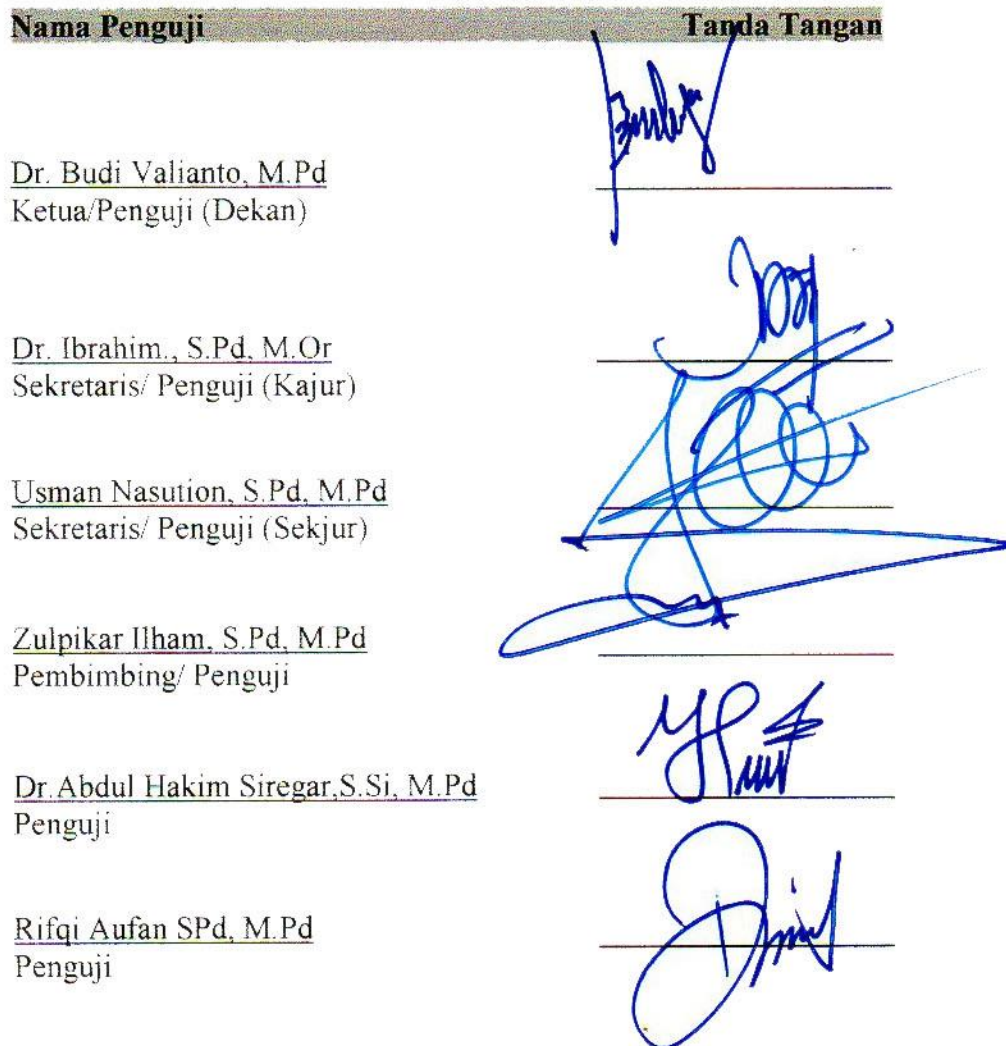 Nama Penguji Tanda Tangan
Dr. Budi Valianto, M.Pd
Ketua/Penguji (Dekan)
Dr. Ibrahim., S.Pd, M.Or
Sekretaris/ Penguji (Kajur)
Usman Nasution, S.Pd, M.Pd
Sekretaris/ Penguji (Sekjur)
Zulpikar Ilham, S.Pd, M.Pd
Pembimbing/ Penguji
Dr.Abdul Hakim Siregar,S.Si, M.Pd
Penguji
Rifqi Aufan SPd, M.Pd
Penguji